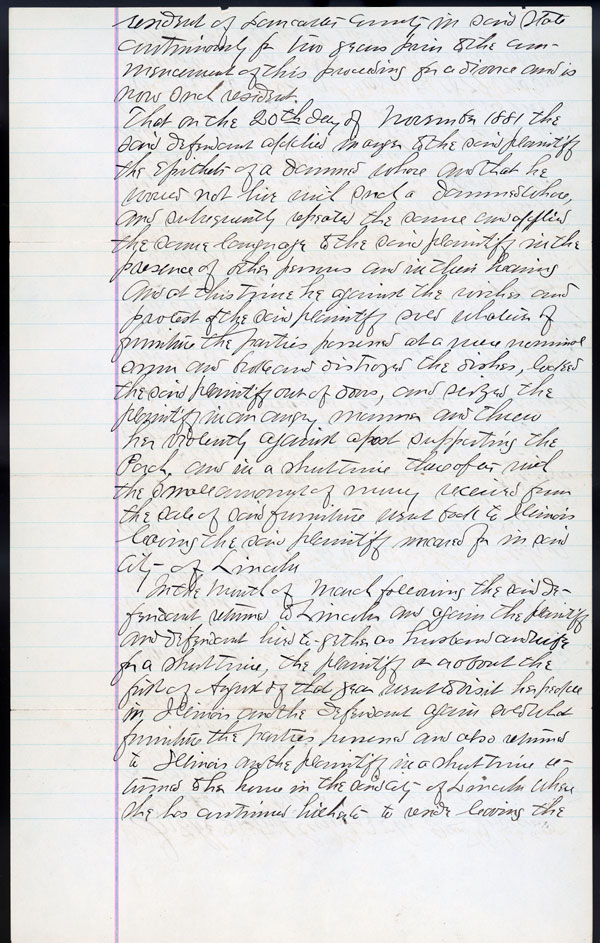 resident of Lancaster County in said State
continuously for two years prior to the com-
mencement of this proceeding for a divorce and is
now such resident.
That on the 20th day of November 1881 the
said defendant applied in anger to the said plaintiff
the Epithets of a damned whore and that he
would not live with such a damned whore,
and subsequently repeated the same and applied
the same language to the said plaintiff in the
presence of other persons and in their hearing
and at this time he against the wishes and
protest of the said plaintiff sold what of
furniture the parties possessed at a mere nominal
sum and broke and distroyed the dishes, locked
the said plaintiff out of doors, and seized the
plaintiff in an angry manner and threw
her violently against a post supporting the
Porch, and in a short time thereafter with
the small amount of money received from
the sale of said furniture went back to Illinois
leaving the said plaintiff uncared for in said
City of Lincoln
In the month of March following the said de-
fendant returned to Lincoln and again the plaintiff
and defendant lived to-gether as husband and wife
for a short time, the plaintiff on or about the
first of August of that year went to visit her people
in Illinois and the defendant again sold what
furniture the parties possessed and also returned
to Illinois and the plaintiff in a short time re-
turned to her home in the said city of Lincoln where
she has continued hitherto to reside leaving the